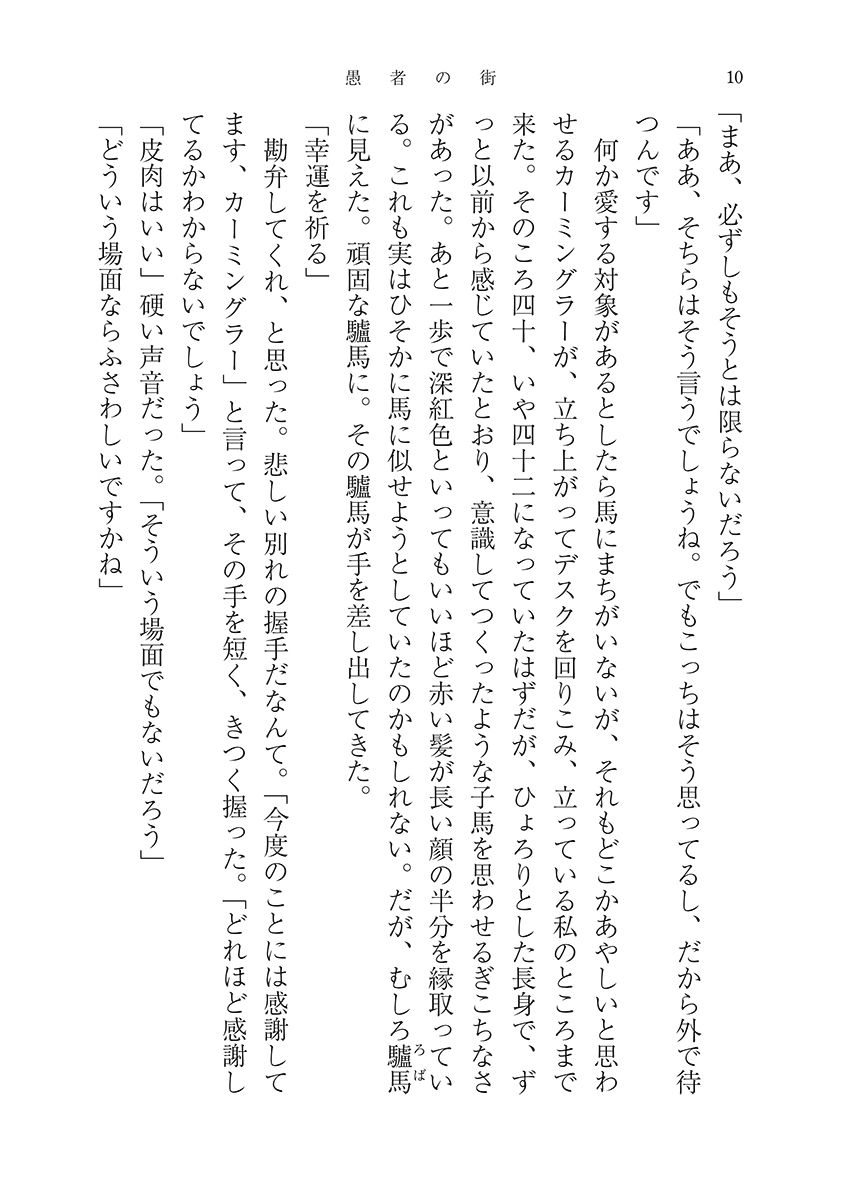 10
愚者の街
「まあ、必ずしもそうとは限らないだろう」
「ああ、そちらはそう言うでしょうね。でもこっちはそう思ってるし、だから外で待
つんです」
何か愛する対象があるとしたら馬にまちがいないが、それもどこかあやしいと思わ
せるカーミングラーが、立ち上がってデスクを回りこみ、立っている私のところまで
来た。そのころ四十、いや四十二になっていたはずだが、ひょろりとした長身で、ず
っと以前から感じていたとおり、意識してつくったような子馬を思わせるぎこちなさ
があった。あと一歩で深紅色といってもいいほど赤い髪が長い顔の半分を縁取ってい
る。これも実はひそかに馬に似せようとしていたのかもしれない。だが、むしろ驢馬
ろば
に見えた。頑固な驢馬に。その驢馬が手を差し出してきた。
「幸運を祈る」
勘弁してくれ、と思った。悲しい別れの握手だなんて。「今度のことには感謝して
ます、カーミングラー」と言って、その手を短く、きつく握った。「どれほど感謝し
てるかわからないでしょう」
「皮肉はいい」硬い声音だった。「そういう場面でもないだろう」
「どういう場面ならふさわしいですかね」